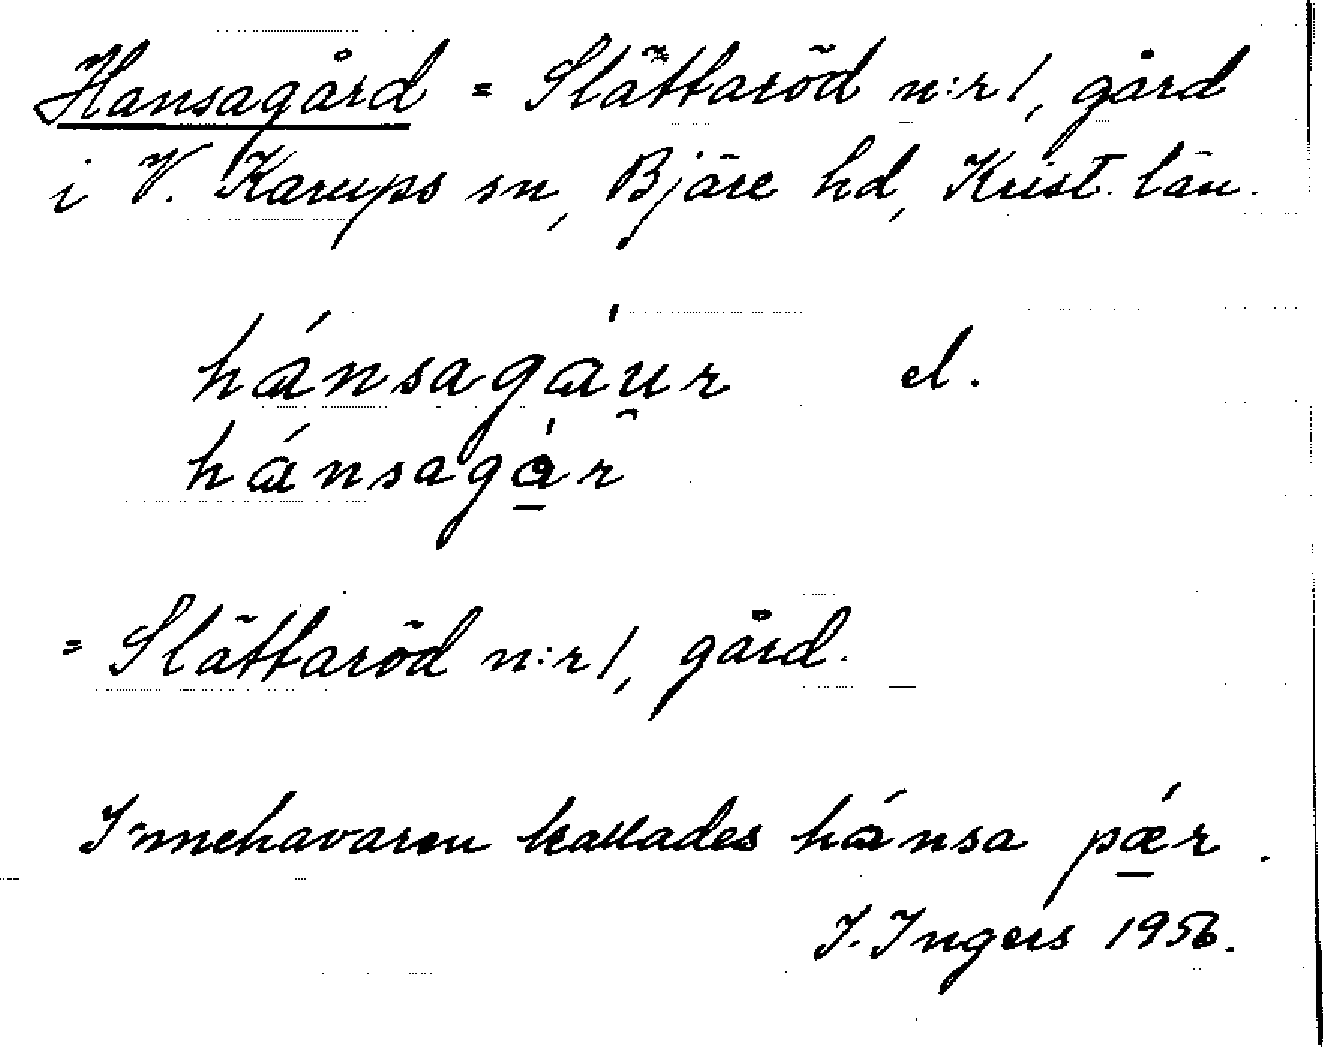 Hansagård = Slättaröd n:r 1, gård
i V. Karups sn, Bjäre hd, Krist. län.
hánsagáur el.
hánsagår
= Slättaröd n:r 1, gård.
Innehavaren kallades hánsa pǽr.
I. Ingers 1956.